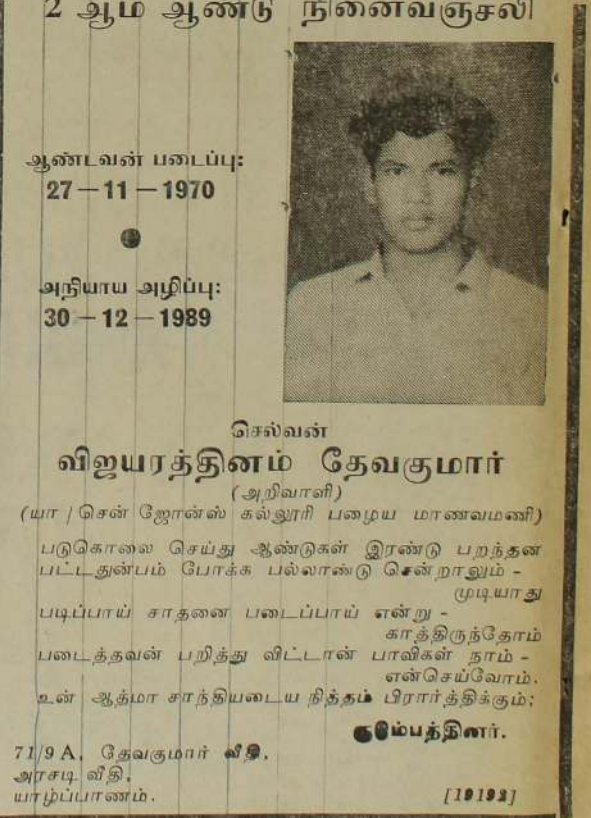 2 ஆம் ஆண்டு நினைவஞ்சலி
ஆண்டவன் படைப்பு:
27-11-1970
அநியாய அழிப்பு:
30-12-1989
செல்வன்
விஜயரத்தினம் தேவகுமார்
(அறிவாளி)
(யா / சென் ஜோன்ஸ் கல்லூரி பழைய மாணவமணி)
படுகொலை செய்து ஆண்டுகள் இரண்டு பறந்தன
பட்டதுன்பம் போக்க பல்லாண்டு சென்றாலும் -
முடியாது
படிப்பாய் சாதனை படைப்பாய் என்று -
காத்திருந்தோம்
படைத்தவன் பறித்து விட்டான் பாவிகள் நாம் -
என்செய்வோம்.
உன் ஆத்மா சாந்தியடைய நித்தம் பிரார்த்திக்கும்;
குடும்பத்தினர்.
71/9 A, தேவகுமார் வீதி,
அரசடி வீதி,
யாழ்ப்பாணம்.